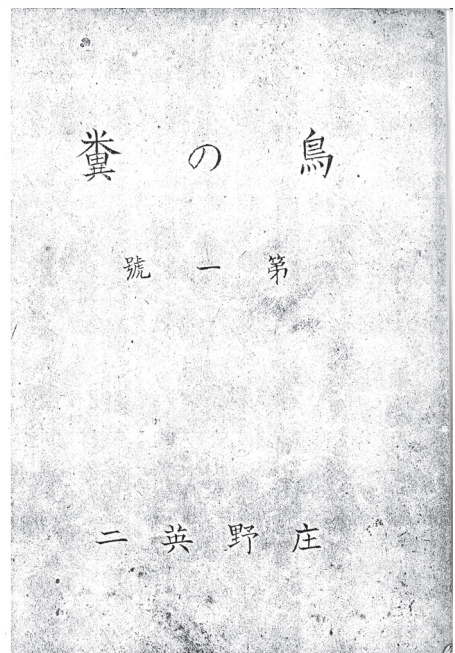 鳥の糞
第一號
庄野英二